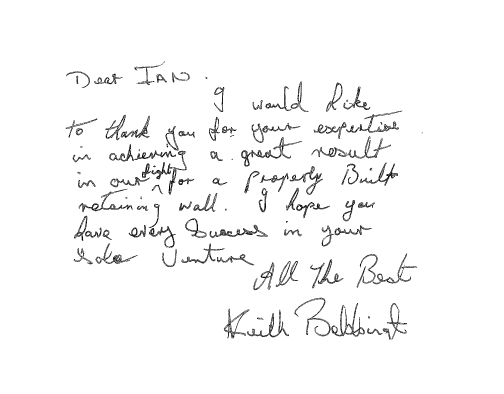 Dear IAN.
I would like
to thank you for your expertise
in achieving a great result
in our fight for a properly Built
retaining wall. I hope you
have every Success in your
Solo Venture
All The Best
Keith